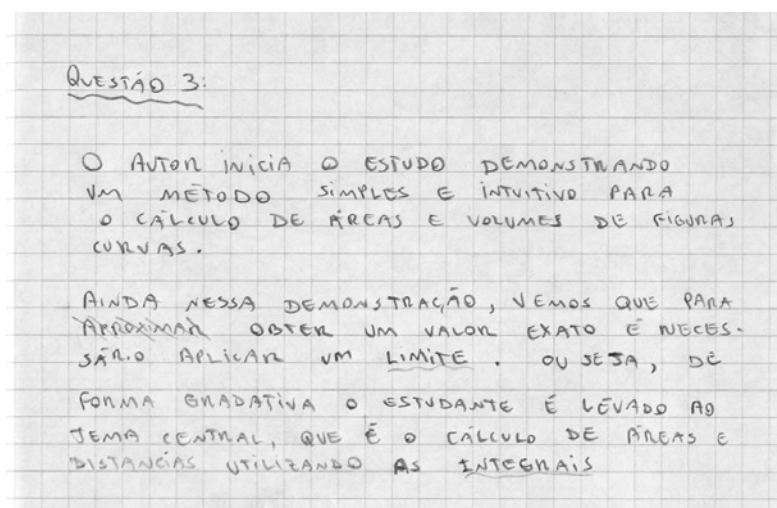 QUESTÃO 3:
O AUTOR INICIA O ESTUDO DEMONSTRANDO
UM MÉTODO SIMPLES E INTUITIVO PARA
O CÁLCULO DE ÁREAS E VOLUMES DE FIGURAS
CURVAS.
AINDA NESSA DEMONSTRAÇÃO, VEMOS QUE PARA
APROXIMAR OBTER UM VALOR EXATO É NECES-
SÁRIO APLICAR UM LIMITE. OU SEJA, DE
FORMA GRADATIVA O ESTUDANTE É LEVADO AO
TEMA CENTRAL, QUE É O CÁLCULO DE ÁREAS E
DISTÂNCIAS UTILIZANDO AS INTEGRAIS